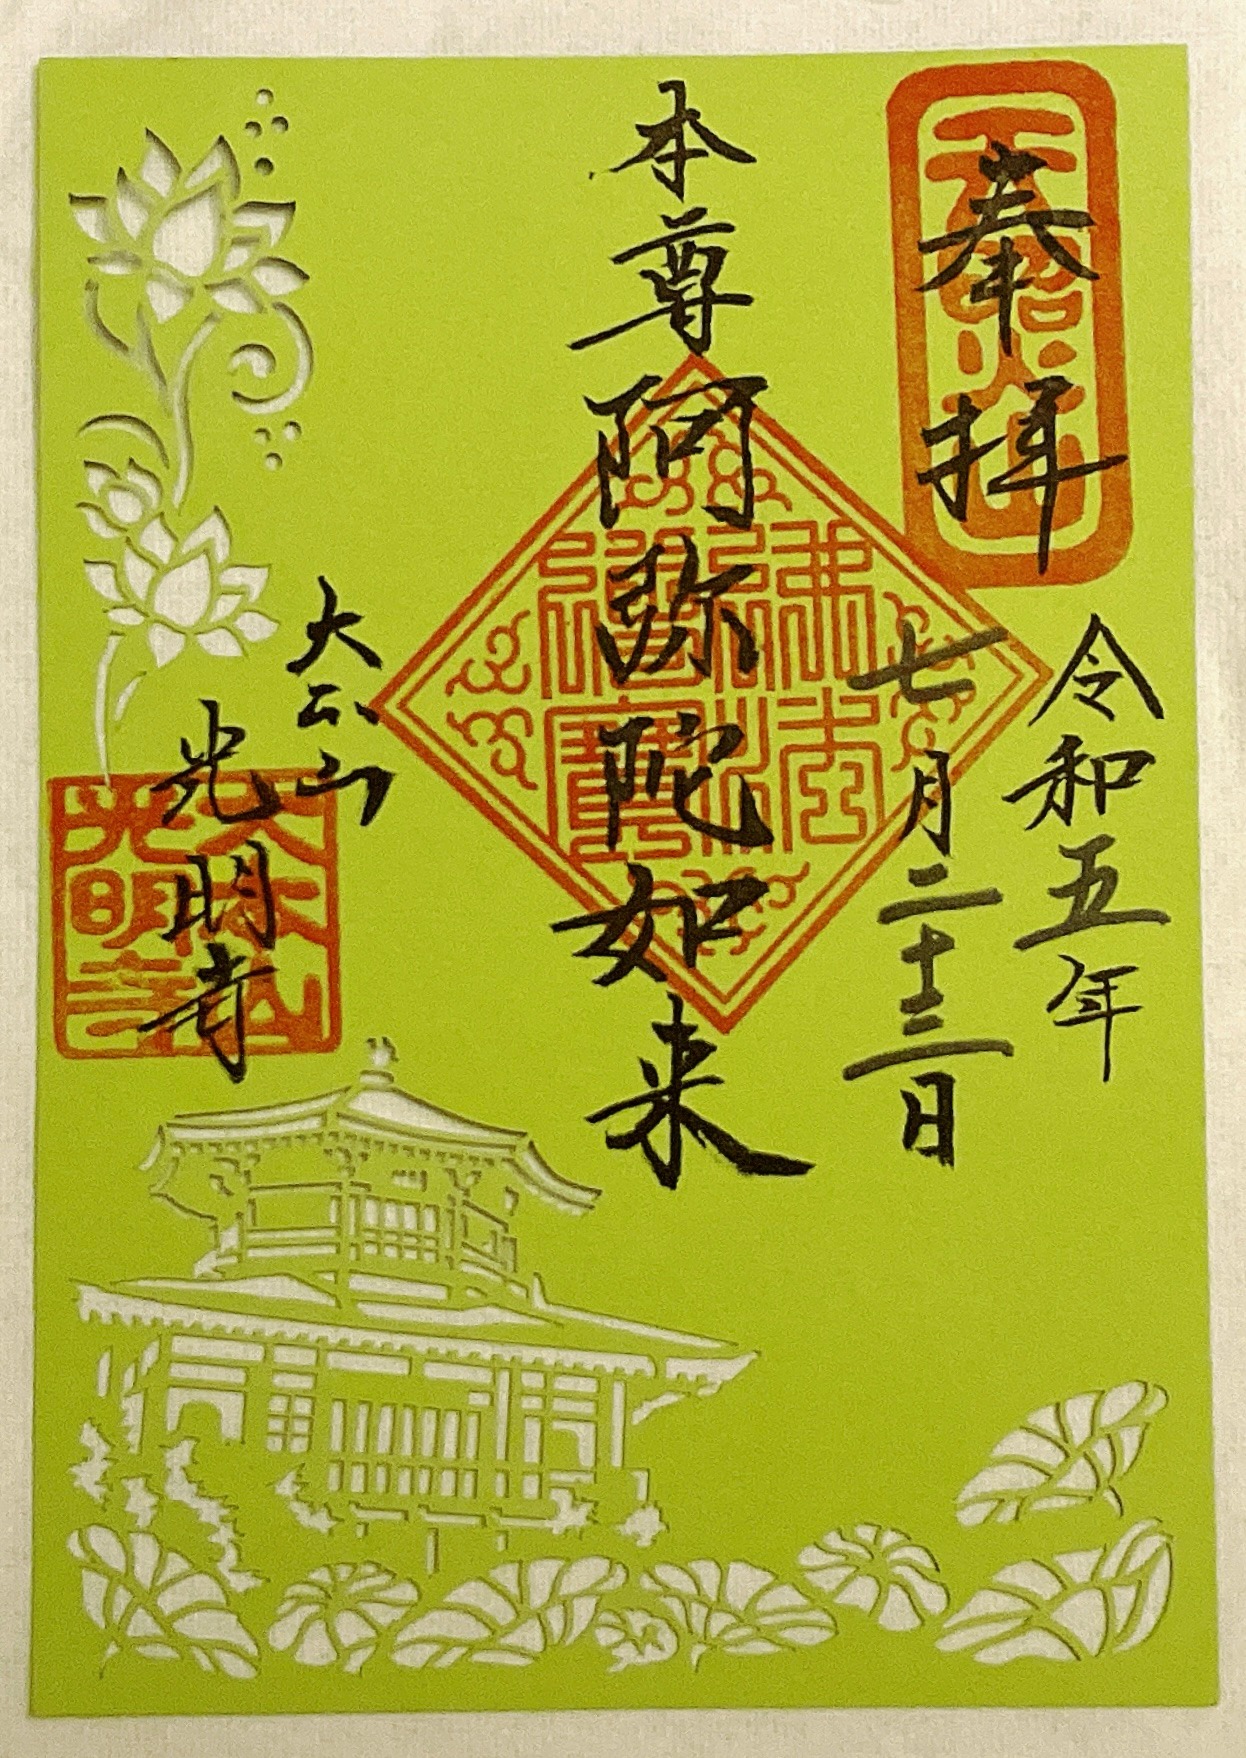 奉拝
天照山
令和五年
七月二十三日
本尊阿弥陀如来
佛法僧寶
大本山
光明寺
大本山
光明寺